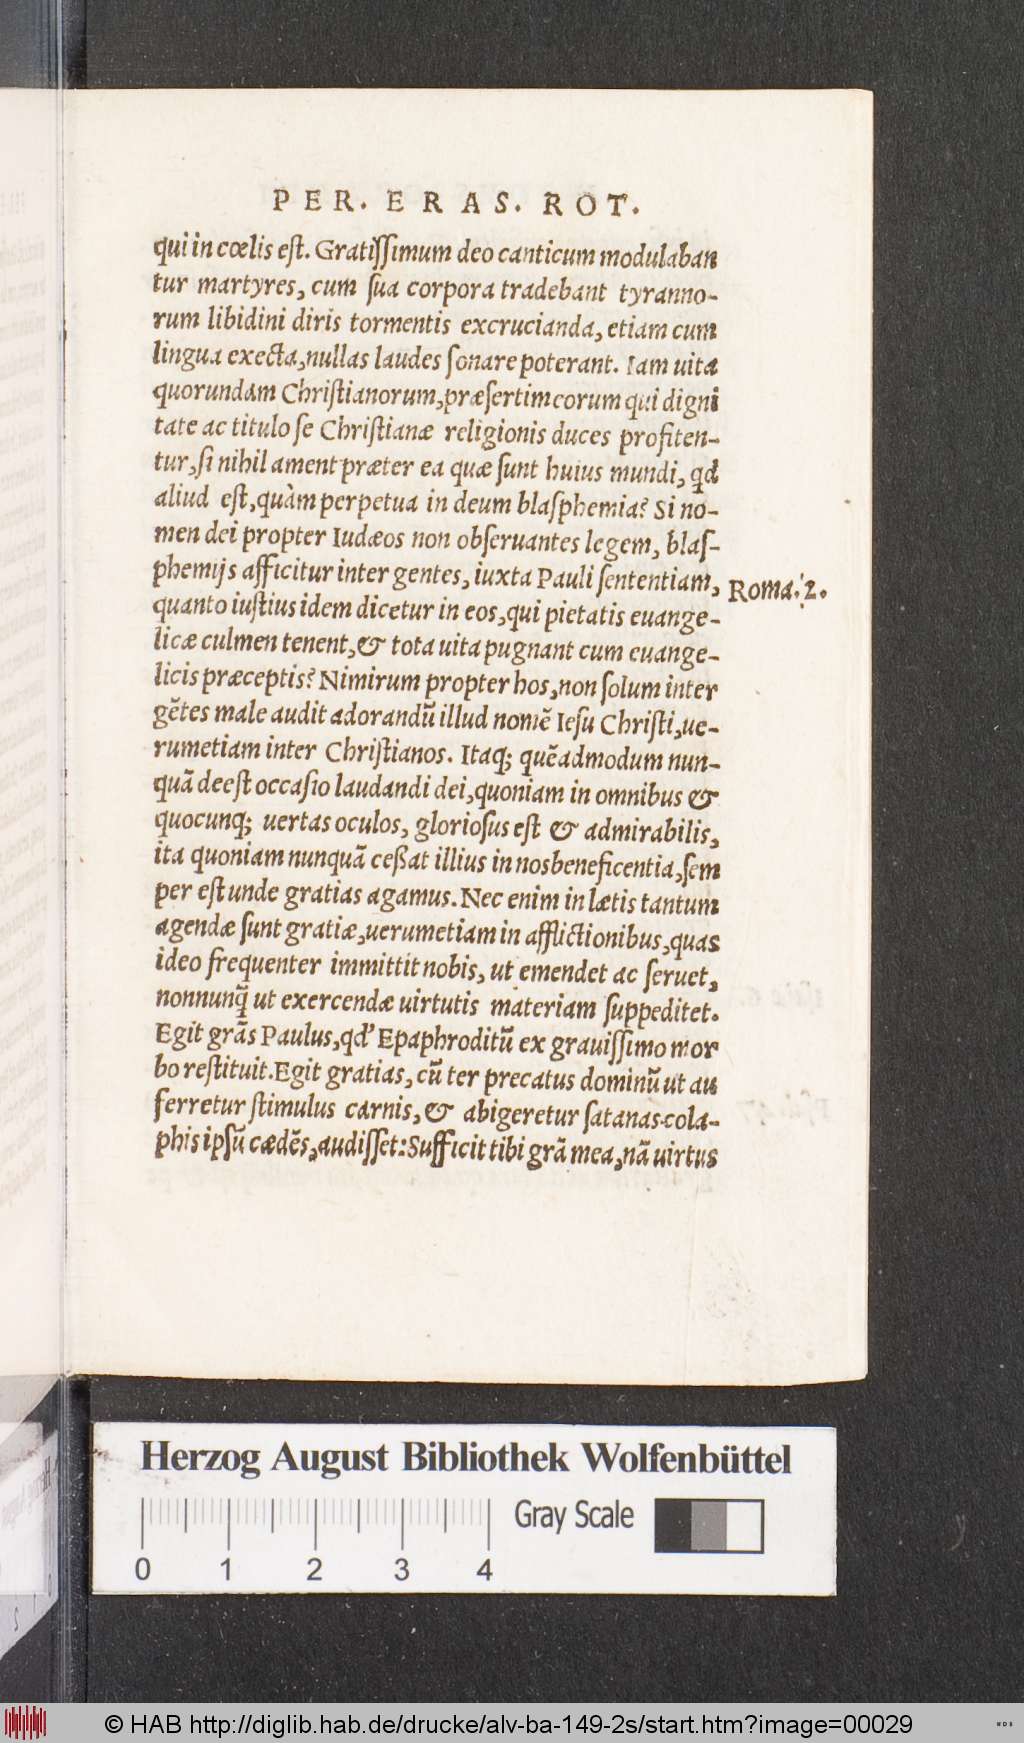 PER. ERAS. ROT.
qui in cœlis eſt. Gratiſſimum deo canticum modulaban
tur martyres, cum ſua corpora tradebant tyranno-
rum libidini diris tormentis excrucianda, etiam cum
lingua execta, nullas laudes ſonare poterant. Iam uita
quorundam Chriſtianorum, præſertim eorum qui digni
tate ac titulo ſe Chriſtianæ religionis duces profiten-
tur, ſi nihil ament præter ea quæ ſunt huius mundi, qd
aliud eſt, quàm perpetua in deum blaſphemia? Si no-
men dei propter Iudæos non obſeruantes legem, blaſ-
phemijs afficitur inter gentes, iuxta Pauli ſententiam,
Roma. 2.
quanto iuſtius idem dicetur in eos, qui pietatis euange-
licæ culmen tenent, & tota uita pugnant cum euange-
licis præceptis? Nimirum propter hos, non ſolum inter
gẽtes male audit adorandũ illud nomẽ Ieſu Chriſti, ue-
rumetiam inter Chriſtianos. Itaq; quẽadmodum nun-
quã deeſt occaſio laudandi dei, quoniam in omnibus &
quocunq; uertas oculos, glorioſus eſt & admirabilis,
ita quoniam nunquã ceßat illius in nos beneficentia, ſem
per eſt unde gratias agamus. Nec enim in lætis tantum
agendæ ſunt gratiæ, uerumetiam in afflictionibus, quas
ideo frequenter immittit nobis, ut emendet ac ſeruet,
nonnunq̃ ut exercendæ uirtutis materiam ſuppeditet.
Egit grãs Paulus, qd' Epaphroditũ ex grauiſſimo mor
bo reſtituit. Egit gratias, cũ ter precatus dominũ ut au
ferretur ſtimulus carnis, & abigeretur ſatanas cola-
phis ipſũ cædẽs, audiſſet: Sufficit tibi grã mea, nã uirtus
Herzog August Bibliothek Wolfenbüttel
Gray Scale
0 1 2 3 4
© HAB http://diglib.hab.de/drucke/alv-ba-149-2s/start.htm?image=00029